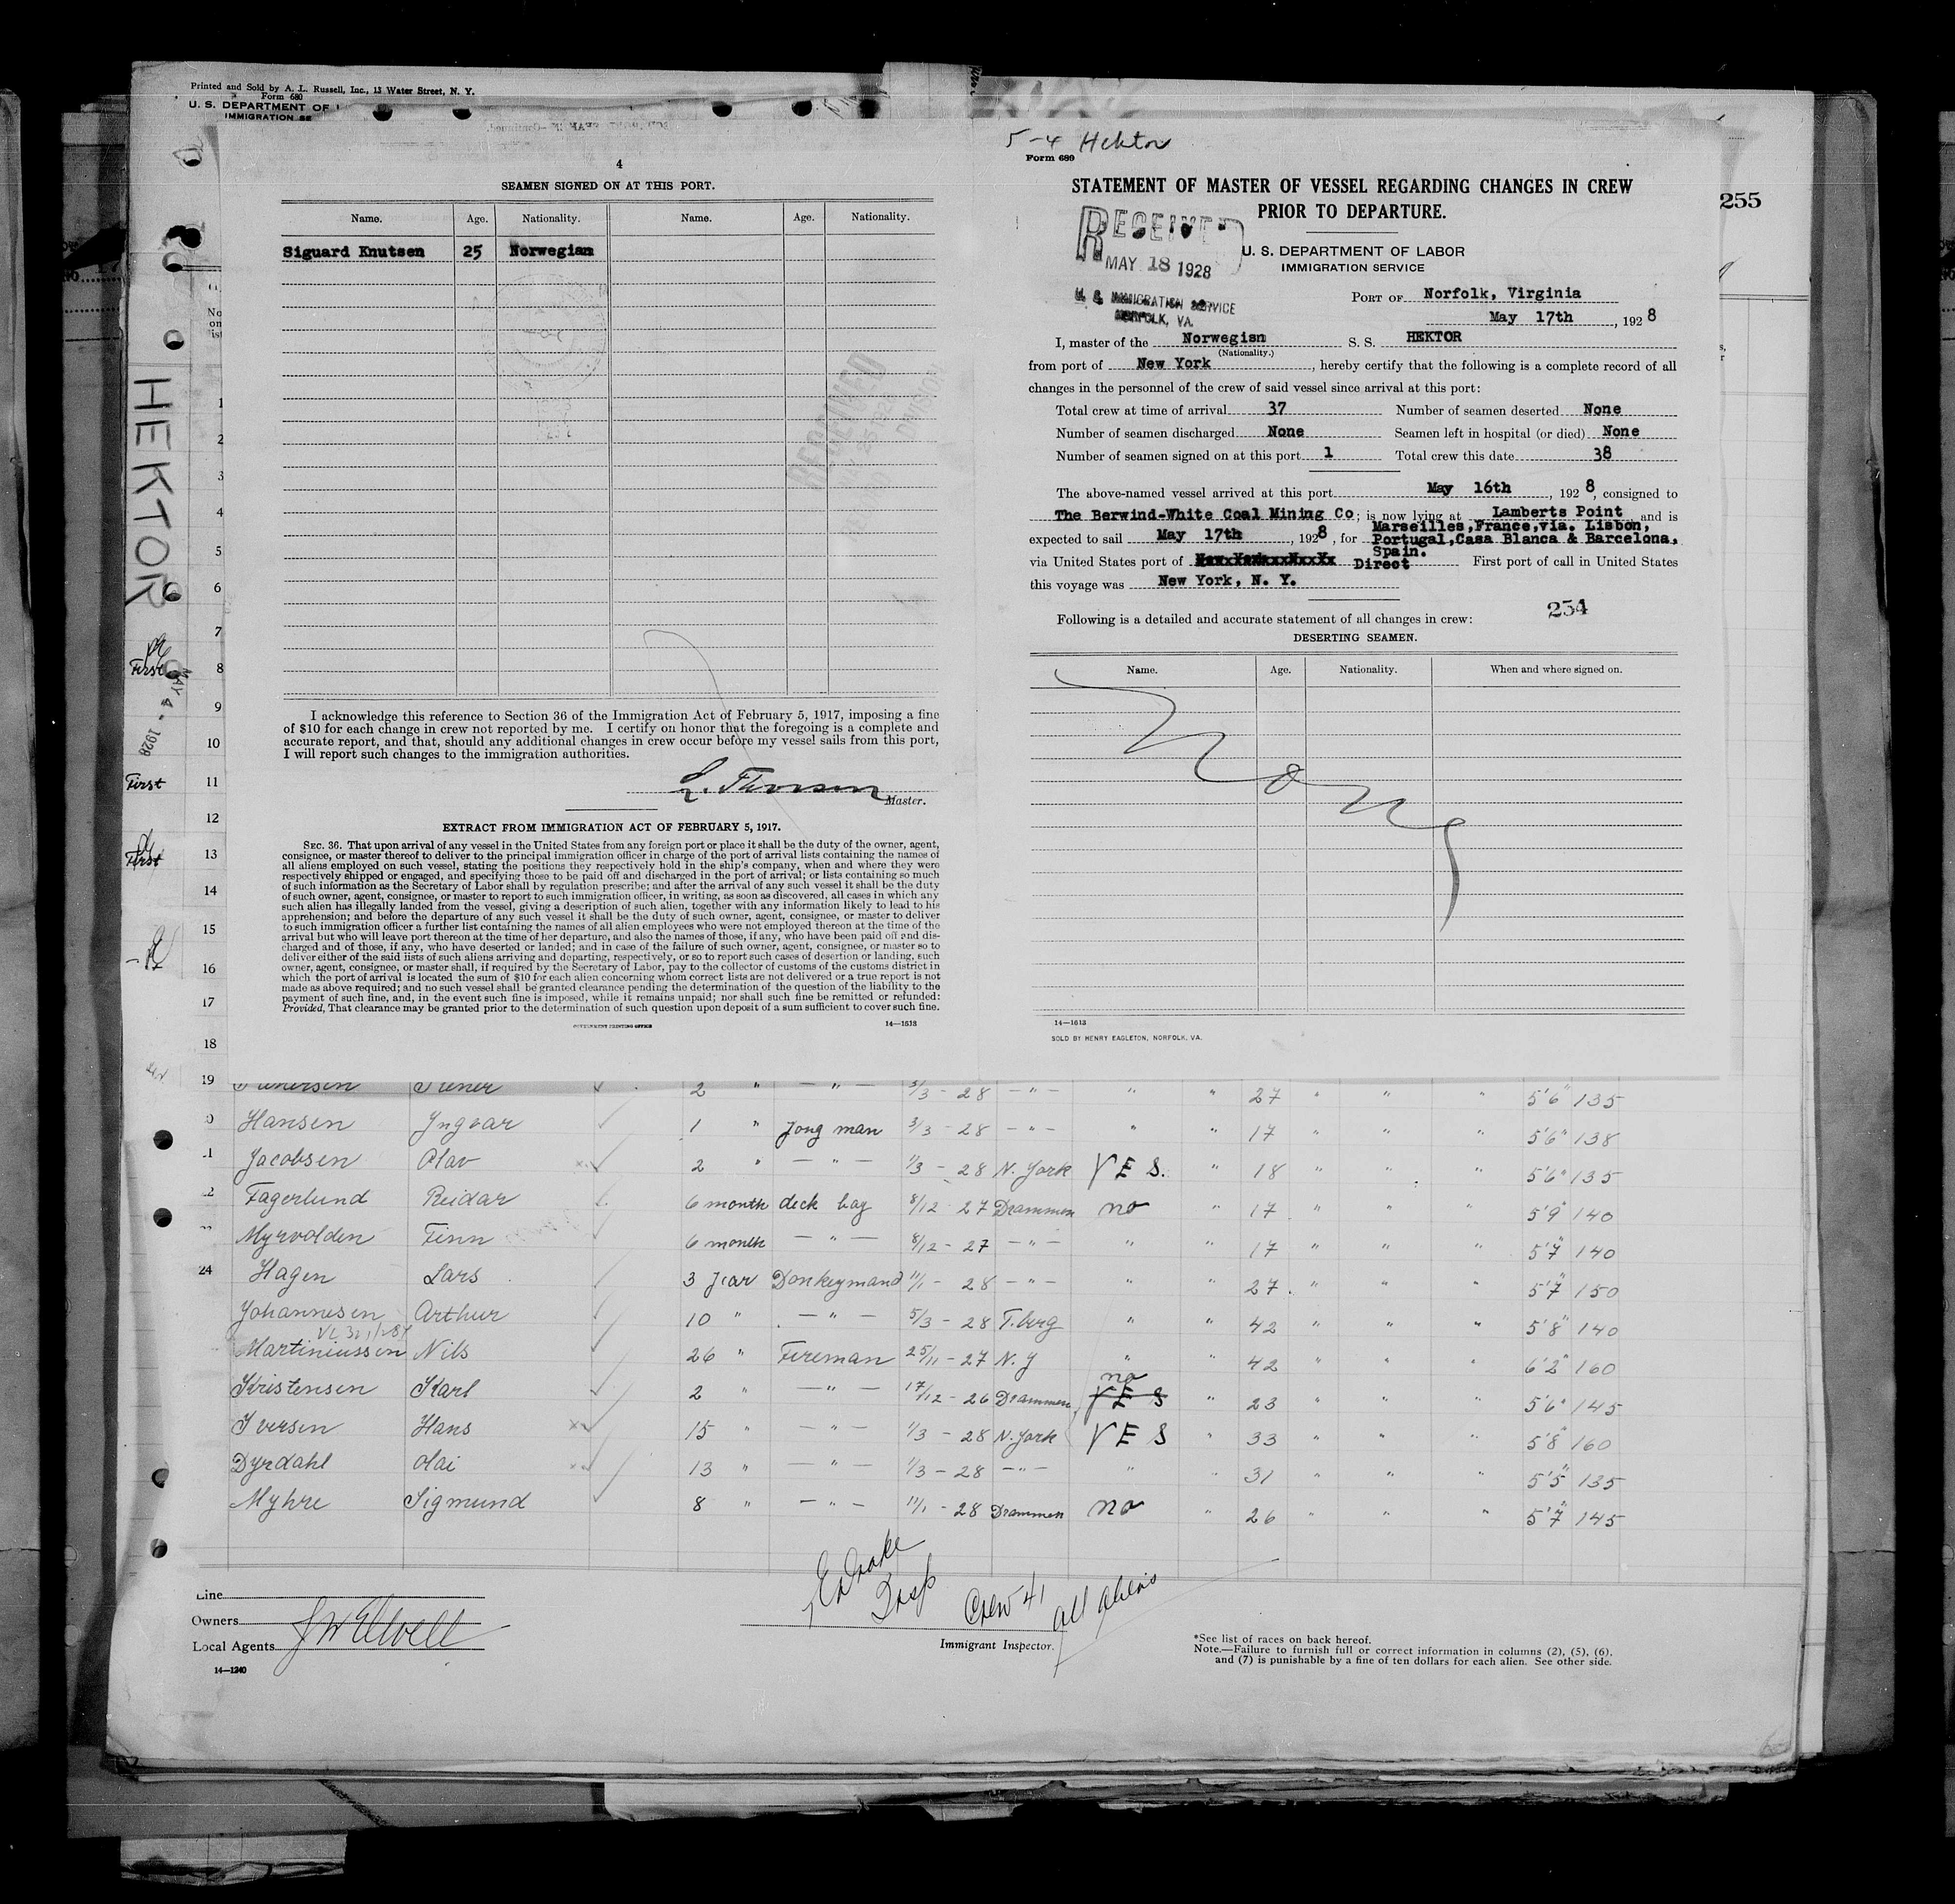 Printed and Sold by A. L. Russell, Inc., 13 Water Street, N. Y.
Form 680
U. S. DEPARTMENT OF
IMMIGRATION SE
HEKTOR
MAY 4 - 1928
First
First
First
4
SEAMEN SIGNED ON AT THIS PORT.
Name. Age. Nationality. Name. Age. Nationality.
Siguard Knutsen 25 Norwegian
I acknowledge this reference to Section 36 of the Immigration Act of February 5, 1917, imposing a fine
of $10 for each change in crew not reported by me. I certify on honor that the foregoing is a complete and
accurate report, and that, should any additional changes in crew occur before my vessel sails from this port,
I will report such changes to the immigration authorities.
L. Thorsen
Master.
EXTRACT FROM IMMIGRATION ACT OF FEBRUARY 5, 1917.
SEC. 36. That upon arrival of any vessel in the United States from any foreign port or place it shall be the duty of the owner, agent,
consignee, or master thereof to deliver to the principal immigration officer in charge of the port of arrival lists containing the names of
all aliens employed on such vessel, stating the positions they respectively hold in the ship's company, when and where they were
respectively shipped or engaged, and specifying those to be paid off and discharged in the port of arrival; or lists containing so much
of such information as the Secretary of Labor shall by regulation prescribe; and after the arrival of any such vessel it shall be the duty
of such owner, agent, consignee, or master to report to such immigration officer, in writing, as soon as discovered, all cases in which any
such alien has illegally landed from the vessel, giving a description of such alien, together with any information likely to lead to his
apprehension; and before the departure of any such vessel it shall be the duty of such owner, agent, consignee, or master to deliver
to such immigration officer a further list containing the names of all alien employees who were not employed thereon at the time of the
arrival but who will leave port thereon at the time of her departure, and also the names of those, if any, who have been paid off and dis-
charged and of those, if any, who have deserted or landed; and in case of the failure of such owner, agent, consignee, or master so to
deliver either of the said lists of such aliens arriving and departing, respectively, or so to report such cases of desertion or landing, such
owner, agent, consignee, or master shall, if required by the Secretary of Labor, pay to the collector of customs of the customs district in
which the port of arrival is located the sum of $10 for each alien concerning whom correct lists are not delivered or a true report is not
made as above required; and no such vessel shall be granted clearance pending the determination of the question of the liability to the
payment of such fine, and, in the event such fine is imposed, while it remains unpaid; nor shall such fine be remitted or refunded:
Provided, That clearance may be granted prior to the determination of such question upon deposit of a sum sufficient to cover such fine.
GOVERNMENT PRINTING OFFICE 14—1513
5-4 Hektor
Form 689
STATEMENT OF MASTER OF VESSEL REGARDING CHANGES IN CREW
PRIOR TO DEPARTURE.
RECEIVED
MAY 18 1928
U. S. IMMIGRATION SERVICE
NORFOLK, VA.
U. S. DEPARTMENT OF LABOR
IMMIGRATION SERVICE
PORT OF Norfolk, Virginia
May 17th, 1928
I, master of the Norwegian S. S. HEKTOR
(Nationality.)
from port of New York, hereby certify that the following is a complete record of all
changes in the personnel of the crew of said vessel since arrival at this port:
Total crew at time of arrival 37 Number of seamen deserted None
Number of seamen discharged None Seamen left in hospital (or died) None
Number of seamen signed on at this port 1 Total crew this date 38
The above-named vessel arrived at this port May 16th, 1928, consigned to
The Berwind-White Coal Mining Co; is now lying at Lamberts Point and is
expected to sail May 17th, 1928, for Marseilles,France,via. Lisbon,
Portugal,Casa Blanca & Barcelona,
Spain.
via United States port of Direct First port of call in United States
this voyage was New York, N. Y.
254
Following is a detailed and accurate statement of all changes in crew:
DESERTING SEAMEN.
Name. Age. Nationality. When and where signed on.
None
14—1513
SOLD BY HENRY EAGLETON, NORFOLK, VA.
255
1
2
3
4
5
6
7
8
9
10
11
12
13
14
15
16
17
18
19 2 " — " — 3/3 - 28 — " — " " 27 " " " 5'6" 135
Hansen Ingvar 1 " Jong man 3/3 - 28 — " — " " 17 " " " 5'6" 138
Jacobsen Olav 2 " — " — 1/3 - 28 N. York YES. " 18 " " " 5'6" 135
Fagerlund Reidar 6 month deck bay 8/12 - 27 Drammen no " 17 " " " 5'9" 140
Myrvolden Finn 6 month — " — 8/12 - 27 — " — " " 17 " " " 5'7" 140
24 Hagen Lars 3 jear Donkeymand 11/1 - 28 — " — " " 27 " " " 5'7" 150
Johannesen Arthur 10 " — " — 5/3 - 28 T.berg " " 42 " " " 5'8" 140
Martiniussen Nils 26 " Fireman 25/11 - 27 N. Y " " 42 " " " 6'2" 160
Kristensen Karl 2 " — " — 17/12 - 26 Drammen no YES " 23 " " " 5'6" 145
Iversen Hans 15 " — " — 1/3 - 28 N. York YES " 33 " " " 5'8" 160
Dyrdahl Olai 13 " — " — 1/3 - 28 — " — " " 31 " " " 5'5" 135
Myhre Sigmund 8 " — " — 11/1 - 28 Drammen no " 26 " " " 5'7" 145
Line
Owners
Local Agents J W Elwell
14—1240
Drake
Insp
Crew 41
all aliens
Immigrant Inspector.
*See list of races on back hereof.
Note.—Failure to furnish full or correct information in columns (2), (5), (6),
and (7) is punishable by a fine of ten dollars for each alien. See other side.